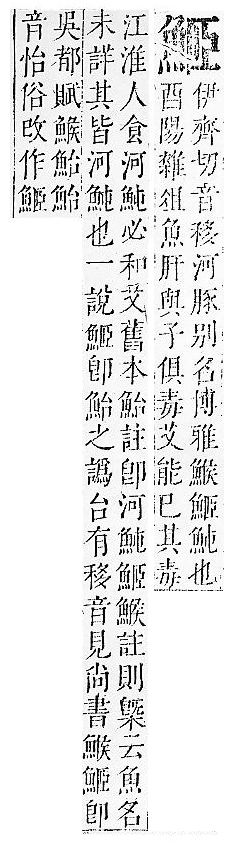 䱌
伊齊切音移河豚别名博雅鯸䱌魨也
酉陽雜俎魚肝與子俱毒艾能已其毒
江淮人食河魨必和艾舊本鮐註卽河魨䱌鯸註則槩云魚名
未詳其皆河魨也一說䱌卽鮐之譌台有移音見尚書鯸䱌卽
吳都賦鯸鮐鮐
音怡俗改作䱌